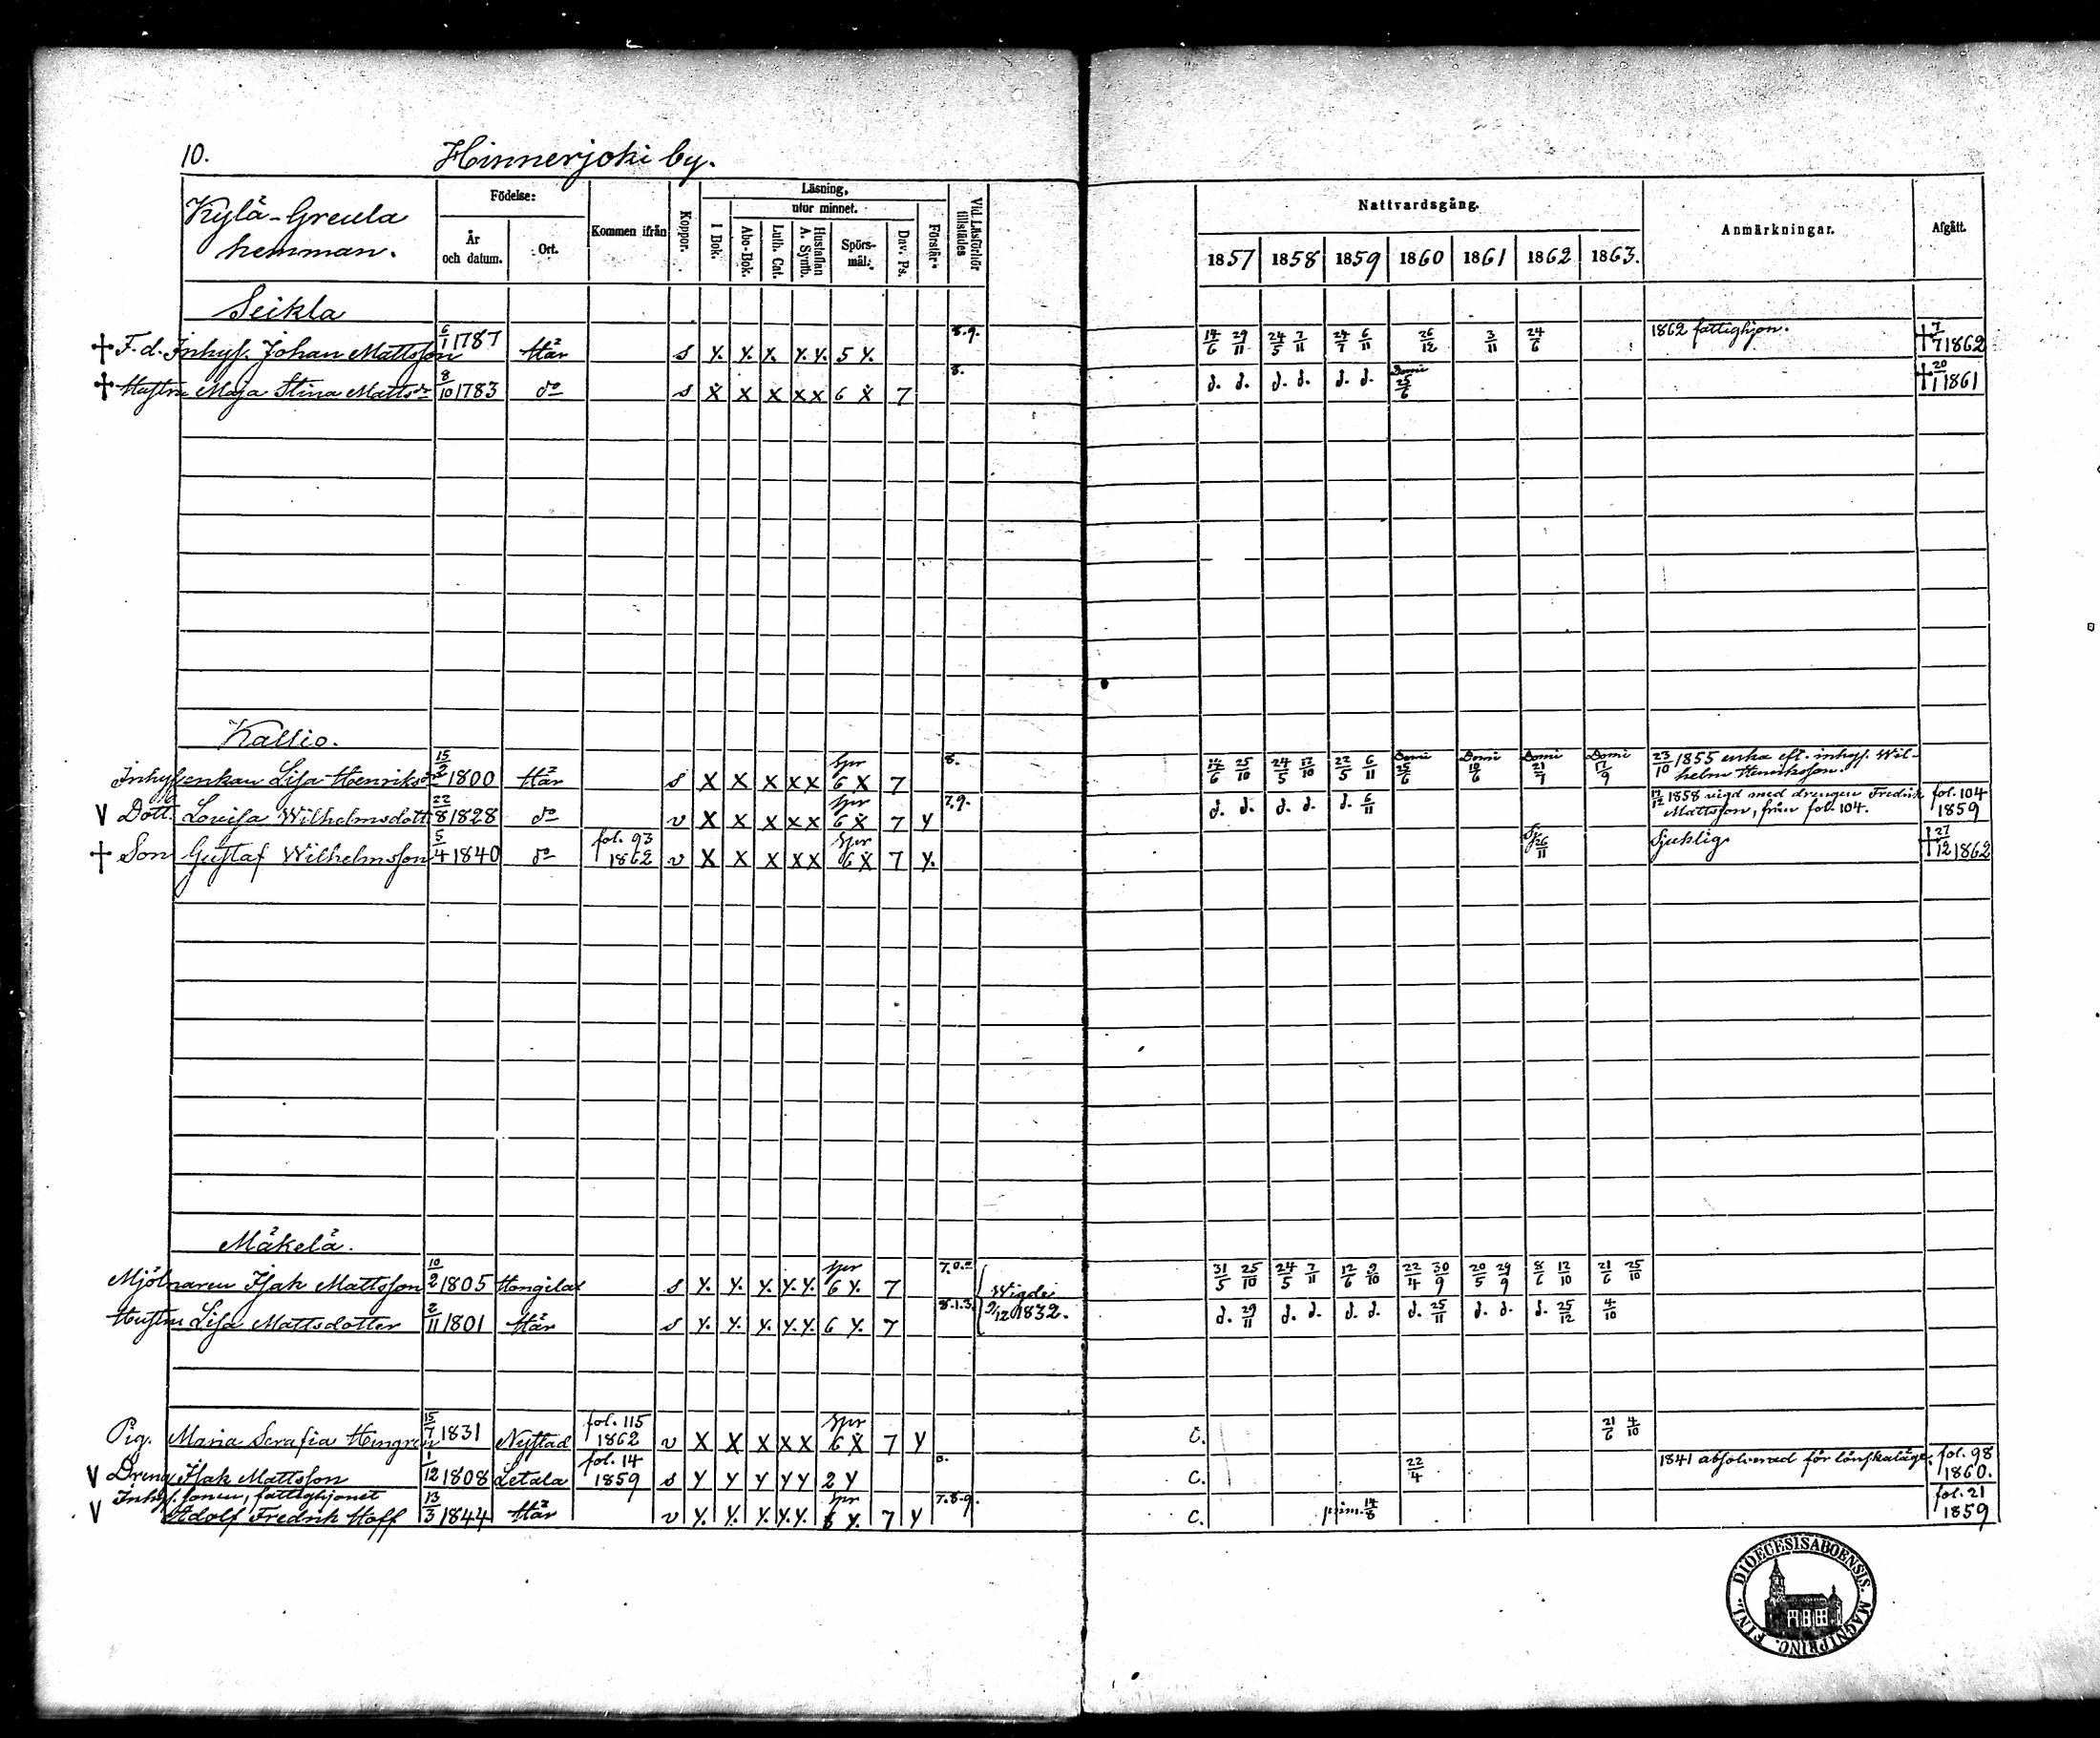 10. Hinnerjoki by.
Kylä-Greula hemman.
Födelse:
År och datum.
Ort.
Kommen ifrån
Koppor.
Läsning,
utur minnet.
I Bok.
Abc-Bok.
Luth. Cat.
Hustaflan A. Symb.
Spörsmål.
Dav. Ps.
Förstår
Vid Läsförhör tillstädes
Nattvardsgång.
1857 1858 1859 1860 1861 1862 1863.
Anmärkningar.
Afgått.
Seikla
† F.d. Inhys. Johan Mattsson 6/1 1787 Här s y. y. y. y. y. 5 y. 8.9. 14/6 29/11 24/5 7/11 24/7 6/11 26/12 3/11 24/6 1862 fattighjon. † 7/7 1862
† Hustru Maja Stina Mattsdr 8/10 1783 do s x x x x x 6 x 7 8. d. d. d. d. d. d. Domi 25/6 † 20/1 1861
Kallio.
Inhysenkan Lisa Henriksdr 15/2 1800 Här s x x x x x Spr 6 x 7 8. 14/6 25/10 24/5 17/10 22/5 6/11 Domi 25/6 Domi 10/6 Domi 21/7 Domi 17/9 23/10 1855 enka eft. inhys. Wilhelm Henriksson.
V Dott. Lovisa Wilhelmsdott 22/8 1828 do v x x x x x Spr 6 x 7 y 7.9. d. d. d. d. d. 6/11 17/12 1858 vigd med drengen Fredrik Mattsson, från fol. 104. fol. 104 1859
† Son Gustaf Wilhelmsson 5/4 1840 do fol. 93 1862 v x x x x x Spr 6 x 7 y. Sj. 26/11 Sjuklig † 27/12 1862
Mäkelä.
Mjölnaren Isak Mattsson 10/2 1805 Hongilax s y. y. y. y. y. Spr 6 y. 7 7.0. Wigde 31/5 25/10 24/5 7/11 12/6 9/10 22/4 30/9 20/5 29/9 8/6 12/10 21/6 25/10
Hustru Lisa Mattsdotter 2/11 1801 Här s y. y. y. y. y. 6 y. 7 8.1.3. 9/12 1832. d. 29/11 d. d. d. d. d. 25/11 d. d. d. 25/12 4/10
Pig. Maria Serafia Hengren 15/7 1831 Nystad fol. 115 1862 v x x x x x Spr 6 x 7 y C. 21/6 4/10
V Dreng Isak Mattsson 1/12 1808 Letala fol. 14 1859 s y y y y y 2 y 0. C. 22/4 1841 absolverad för lönskaläge. fol. 98 1860.
Inhys. sonen, fattighjonet
V Adolf Fredrik Hoff 13/3 1844 Här v y. y. y. y. y. Spr 6 y. 7 y 7.8.9. C. prim. 14/8 fol. 21 1859
DIOECESIS ABOENSIS. MAGNI PRINC. FINL.